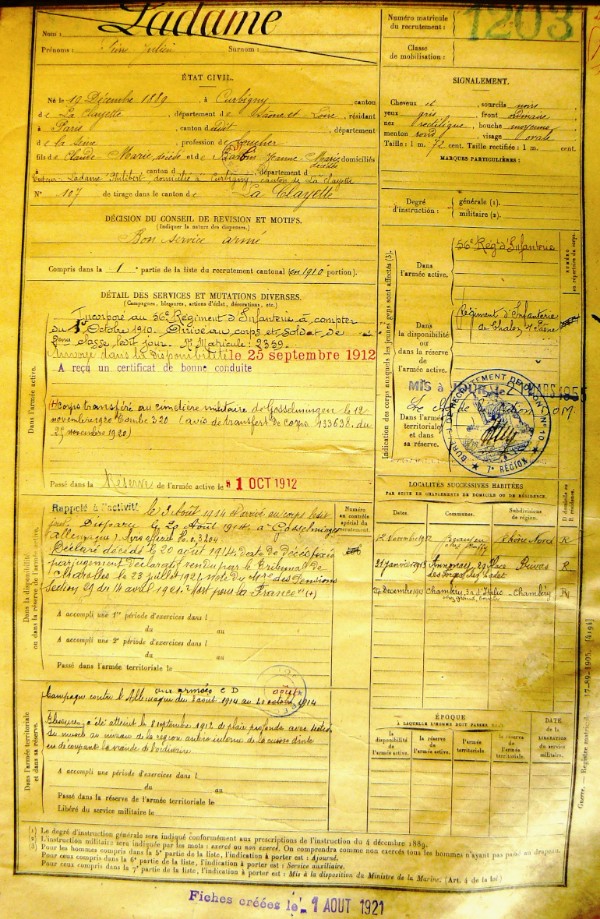 Nom : Ladame
Prénoms : Pierre Julien Surnom :
Numéro matricule
du recrutement :
1203
Classe
de mobilisation :
ÉTAT CIVIL.
Né le 19 Décembre 1889, à Curbigny, canton
de La Clayette, département de Saône et Loire, résidant
à Paris, canton dudit, département
de la Seine, profession de boucher
fils de Claude Marie et de Jeanne Marie domiciliés
à , canton d , département d
Ladame Philibert domicilié à Curbigny, canton de La Clayette
N° 107 de tirage dans le canton de La Clayette
SIGNALEMENT.
Cheveux et sourcils noirs
yeux gris, front
nez, bouche moyenne
menton rond, visage ovale
Taille : 1 m. 72 cent. Taille rectifiée : 1 m. cent.
MARQUES PARTICULIÈRES :
Degré
d'instruction :
générale (1).
militaire (2).
DÉCISION DU CONSEIL DE REVISION ET MOTIFS.
(Indiquer la nature des dispenses.)
Bon service armé
Compris dans la 1e partie de la liste du recrutement cantonal (en 1910 portion).
DÉTAIL DES SERVICES ET MUTATIONS DIVERSES.
(Campagnes, blessures, actions d'éclat, décorations, etc.)
Incorporé au 56e Régiment d'Infanterie à compter
du 1er Octobre 1910. Arrivé au corps et soldat de
2ème classe ledit jour. N° Matricule : 2359.
Envoyé dans la Disponibilité le 25 septembre 1912
A reçu un certificat de bonne conduite
Corps transféré au cimetière militaire de Gosselmingen le 12
novembre 1920 Tombe 320 (avis de transfert de corps 133638 du
25 novembre 1920)
Dans l'armée active.
Passé dans la Réserve de l'armée active le 1 OCT 1912
Corps auxquels les jeunes gens sont affectés (5).
Dans
l'armée active.
56e Rég. d'Infanterie
Dans
la disponibilité
ou dans la réserve
de l'armée
active.
Régiment d'Infanterie
de Chalon s/ Saône
Dans
l'armée
territoriale
et dans
sa réserve.
MIS A JOUR
MARS
BUREAU DE RECRUTEMENT
7e RÉGION
LOCALITÉS SUCCESSIVES HABITÉES
PAR SUITE DE CHANGEMENTS DE DOMICILE OU DE RÉSIDENCE.
Dates.
Communes.
Subdivisions
de région.
D. domicile ou
R. résidence.
Rhône Nord R
Annonay Place Privas R
Chambéry d'Italie Chambéry R
Dans la disponibilité
ou dans la réserve de l'armée active.
Rappelé à l'activité le 3 août 1914 Arrivé au corps ledit
jour. Disparu le 20 Août 1914 à Gosselmingen
(Allemagne)
Déclaré décédé le 20 août 1914. Date de Décès fixée
par jugement déclaratif rendu par le Tribunal de
Charolles le 23 juillet 1921 des Pensions
Section du 14 avril 1921. "Mort pour la France" (+)
Numéro au contrôle
spécial du
recrutement.
A accompli une 1e période d'exercices dans l
du au
A accompli une 2e période d'exercices dans l
du au
Passé dans l'armée territoriale le
Dans l'armée territoriale
et dans sa réserve.
aux armées C D
Campagne contre l'Allemagne du 3 août 1914 au 20 août 1914
Blessures : a été atteint le 8 septembre 1912 de plaie profonde avec section
du muscle au niveau de la région antéro interne de la cuisse droite
en découpant la viande de l'ordinaire
A accompli une période d'exercices dans l
du au
Passé dans la réserve de l'armée territoriale le
Libéré du service militaire le
ÉPOQUE
À LAQUELLE L'HOMME DOIT PASSER DANS
la
disponibilité
de l'armée
active.
la réserve
de l'armée
active.
l'armée
territoriale.
la réserve
de l'armée
territoriale.
DATE
DE LA
LIBÉRATION
du service
militaire.
Guerre. — Registre matricule. 17-09-1905. [4191]
(1) Le degré d'instruction générale sera indiqué conformément aux prescriptions de l'instruction du 4 décembre 1889.
(2) L'instruction militaire sera indiquée par les mots : exercé ou non exercé. On comprendra comme non exercés tous les hommes n'ayant pas passé au drapeau.
Pour les hommes compris dans la 5e partie de la liste, l'indication à porter est : Ajourné.
Pour ceux compris dans la 6e partie de la liste, l'indication à porter est : Service auxiliaire.
Pour ceux compris dans la 7e partie de la liste, l'indication à porter est : Mis à la disposition du Ministre de la Marine. (Art. 4 de la loi.)
Fiches créées le 1 AOUT 1921